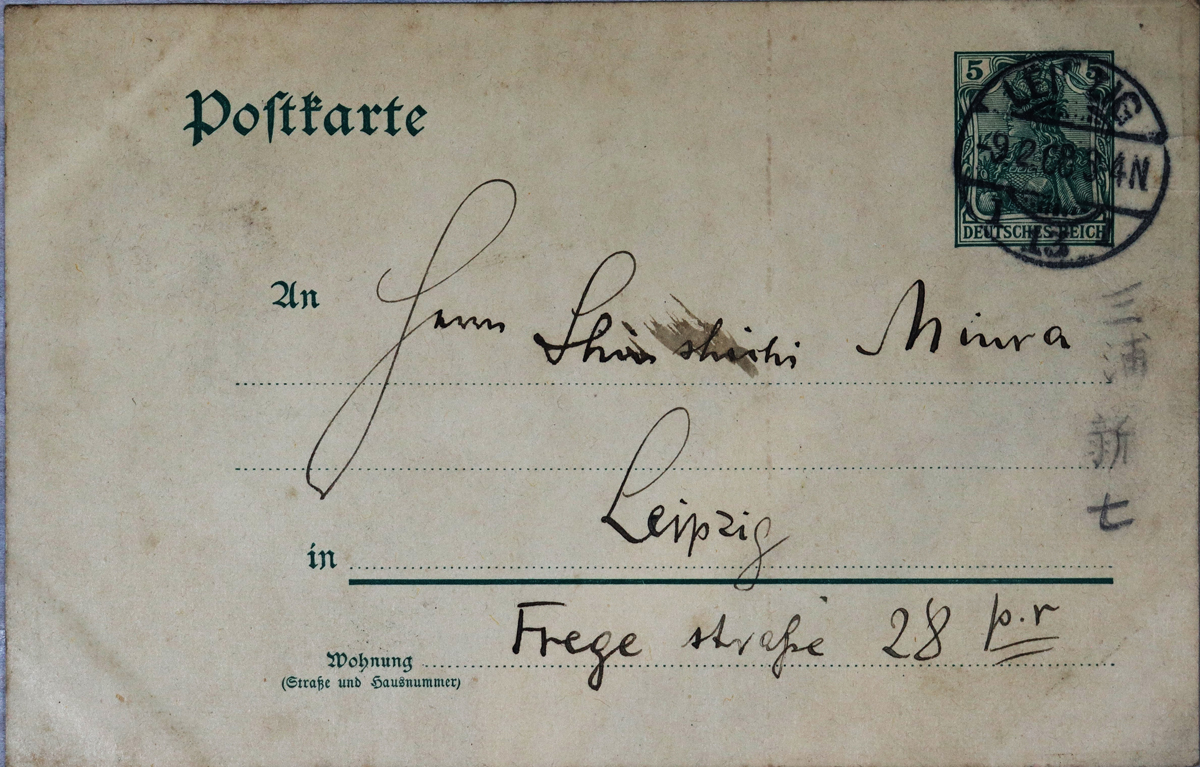 Postkarte
5 5
DEUTSCHES REICH
LEIPZIG
-9.2.08 3-4N
13
An Herrn Shinshichi Miura
in Leipzig
Wohnung Frege straße 28 p.r
(Straße und Hausnummer)
三浦新七